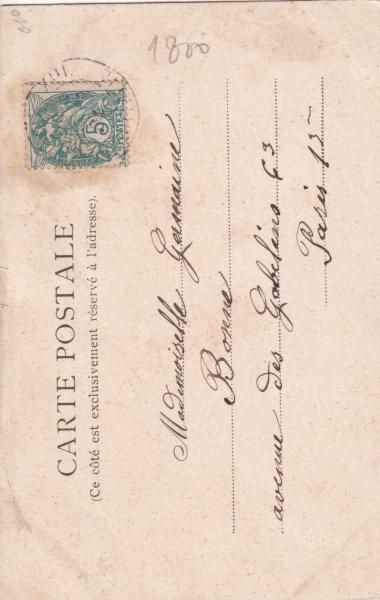 1800
5
POSTES
CARTE POSTALE
(Ce côté est exclusivement réservé à l'adresse).
Mademoiselle Germaine
Bonne
avenue des Gobelins 63
Paris 13